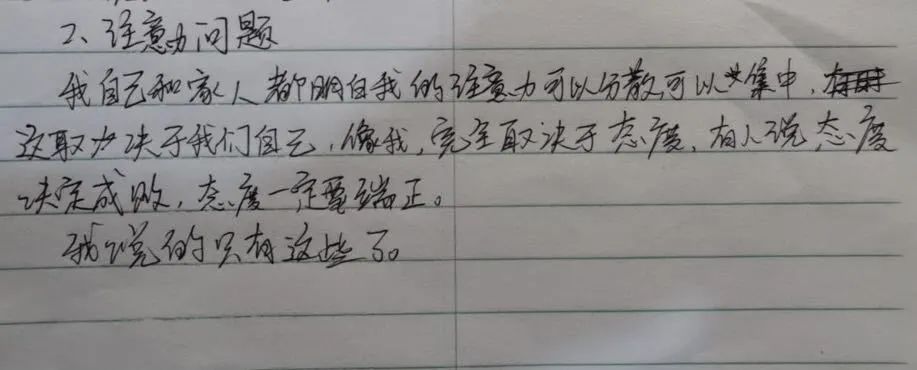 2、注意力问题
我自己和家人都明白我的注意力可以分散可以集中,
这取决于我们自己,像我,完全取决于态度,有人说态度
决定成败,态度一定要端正。
我说的只有这些了。